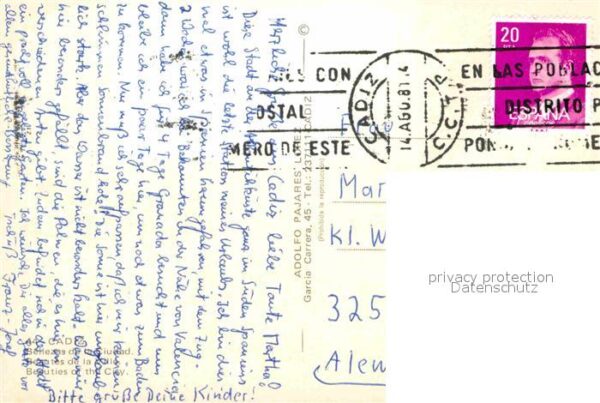 Herzliche Grüße aus Cadiz, liebe Tante Martha!
Diese Stadt an der Atlantikküste ganz im Süden Spaniens
ist wohl die letzte Station meines Urlaubs. Ich bin dies-
mal etwas in Spanien herumgefahren, mit dem Zug.
2 Wochen war ich bei Bekannten in der Nähe von Valencia,
dann habe ich für 4 Tage Granada besucht und nun
bleibe ich ein paar Tage hier, um noch etwas zum Baden
zu kommen. Nur muß ich sehr aufpassen, daß ich mir keinen
schlimmen Sonnenbrand hole. Die Sonne ist hier
stark. Aber das Wasser ist nicht besonders kalt.
hier besonders gefällt sind die Palmen, die es hier in
verschiedenen Arten gibt. Zudem befindet sich in der Stadt
ein prachtvoll Garten. Ich wünsche Dir alles Gute vor
allem gesundheitliche Besserung Franz-Josef
Bitte grüße Deine Kinder!
CADIZ
Bellezas de la Ciudad.
Beautés de la
Beauties of the City.
©
ADOLFO PAJARES
García Carrera, 45 - Tel.: 237
CADIZ
(Prohibida la reproducción)
CON
OSTAL
MERO DE ESTE
CADIZ
14.AGO.81.
C.C.T.P.
EN LAS POBLAC
DISTRITO P
PON
20
ESPAÑA
Mar
Kl. W
325
Alem
privacy protection
Datenschutz